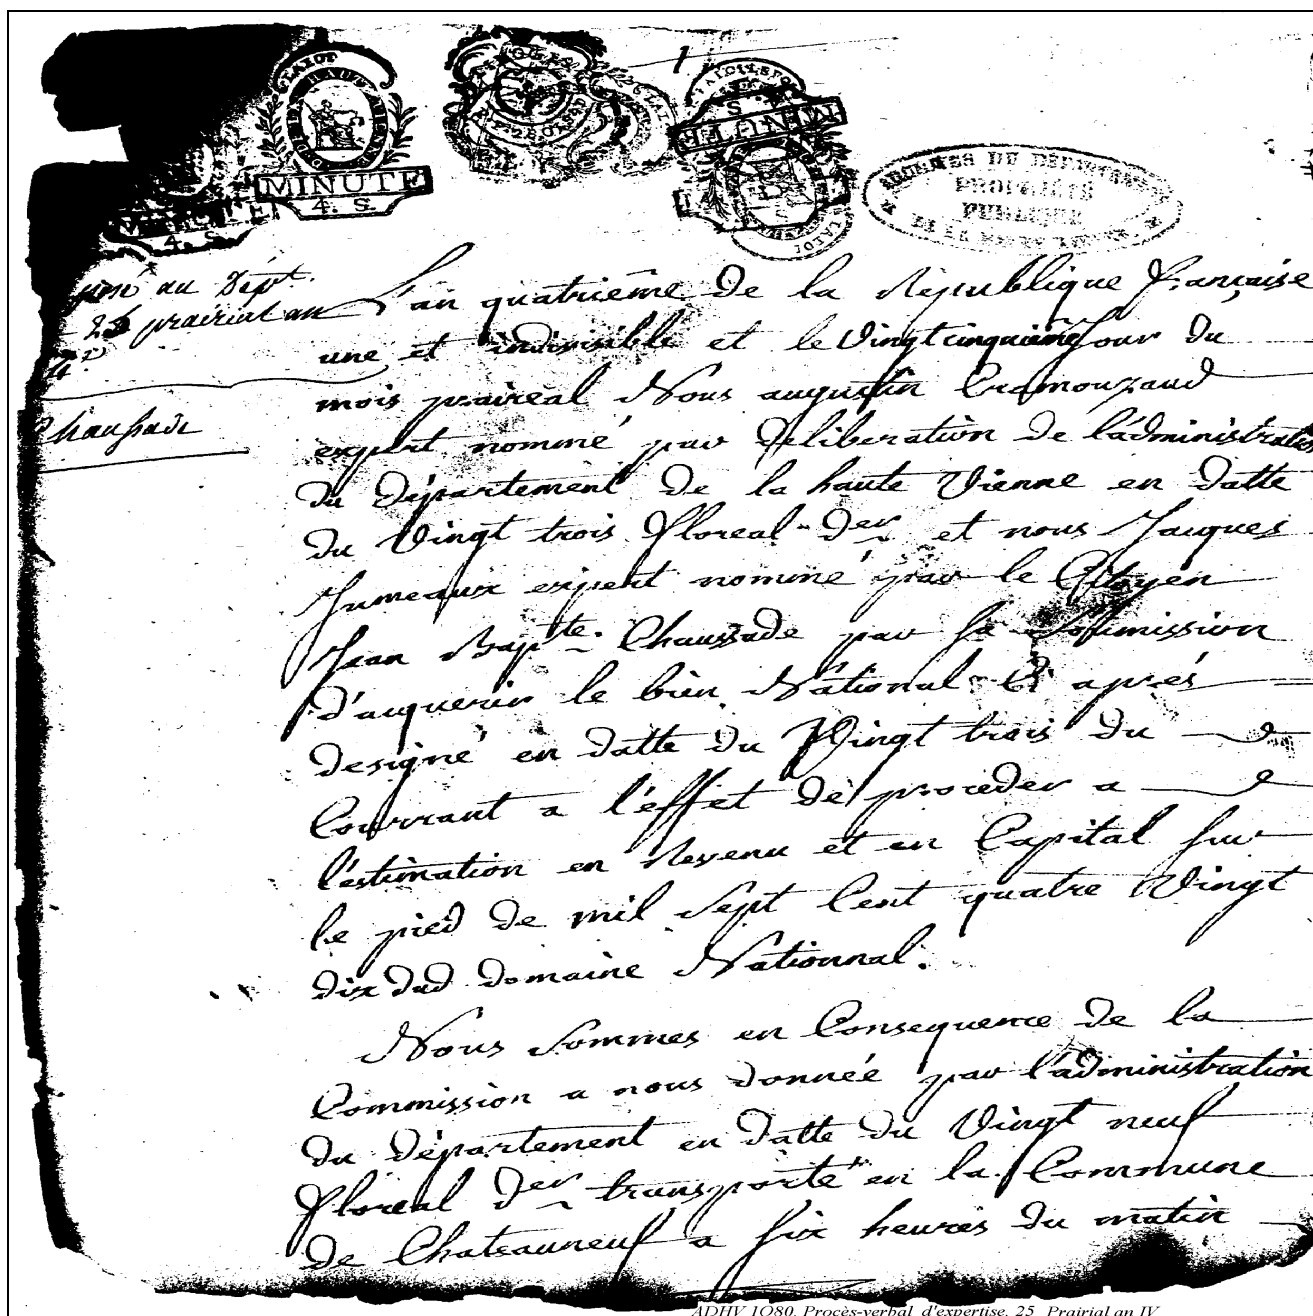 1
MINUTE
4. S.
MINUTE
4. S.
ARCHIVES DU DEPARTEMENT
PROPRIÉTÉ
PUBLIQUE
DE LA HAUTE VIENNE
au Dépt.
25 prairial an
4e
Chaussade
L'an quatrieme de la République française
une et indivisible et le Vingt cinquieme Jour du
mois praireal Nous augustin Cramouzaud
expert nommé par deliberation de l'administration
du département de la haute Vienne en datte
du Vingt trois floreal der et nous Jacques
Jumeaux expert nommé par le Citoyen
Jean Bapte. Chaussade par sa Soumission
d'acquerir le bien National Ci après
designé en datte du Vingt trois du
Courrant a l'effet de proceder a
l'estimation en Revenu et en Capital sur
le pied de mil Sept Cent quatre Vingt
dix dud domaine Nationnal.
Nous Sommes en Consequence de la
Commission a nous donnée par l'administration
du département en datte du Vingt neuf
floreal der transporté en la Commune
de Chateauneuf a six heures du matin
ADHV 1Q80. Procès-verbal d'expertise, 25 Prairial an IV